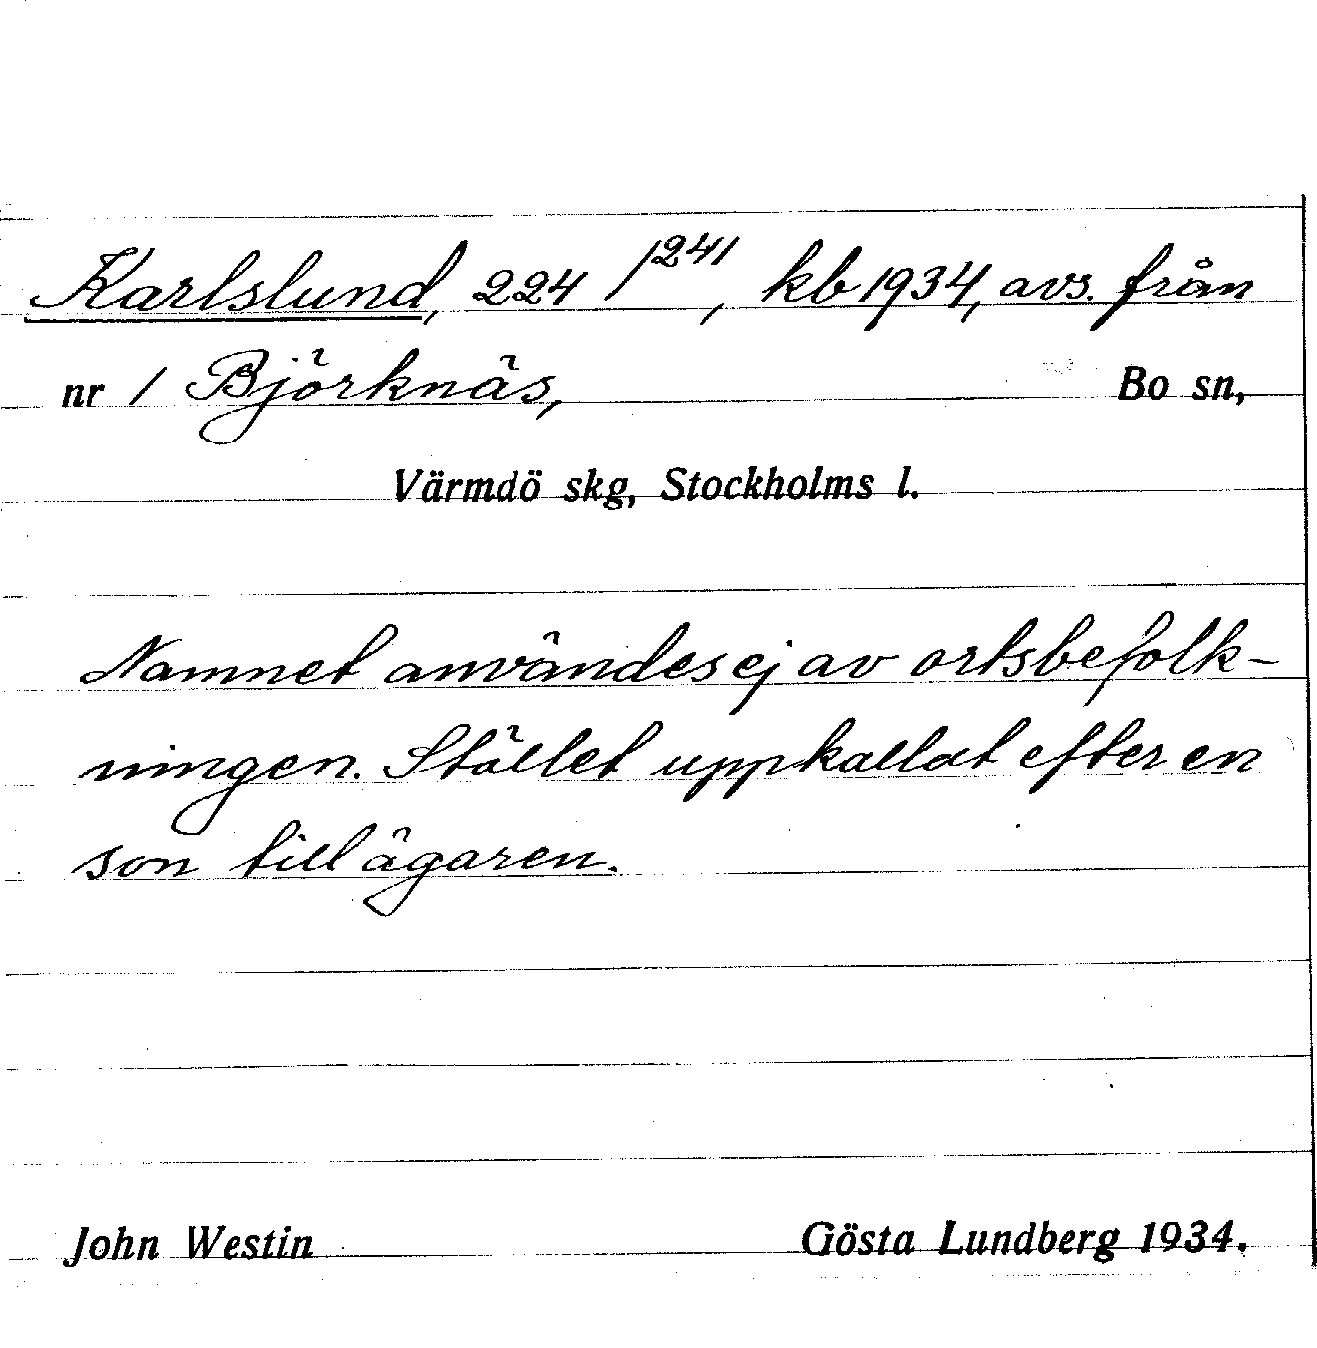 Karlslund, 224 /241, kb 1934, avs. från
nr 1 Björknäs, Bo sn,
Värmdö skg, Stockholms l.
Namnet användes ej av ortsbefolk-
ningen. Stället uppkallat efter en
son till ägaren.
John Westin Gösta Lundberg 1934.